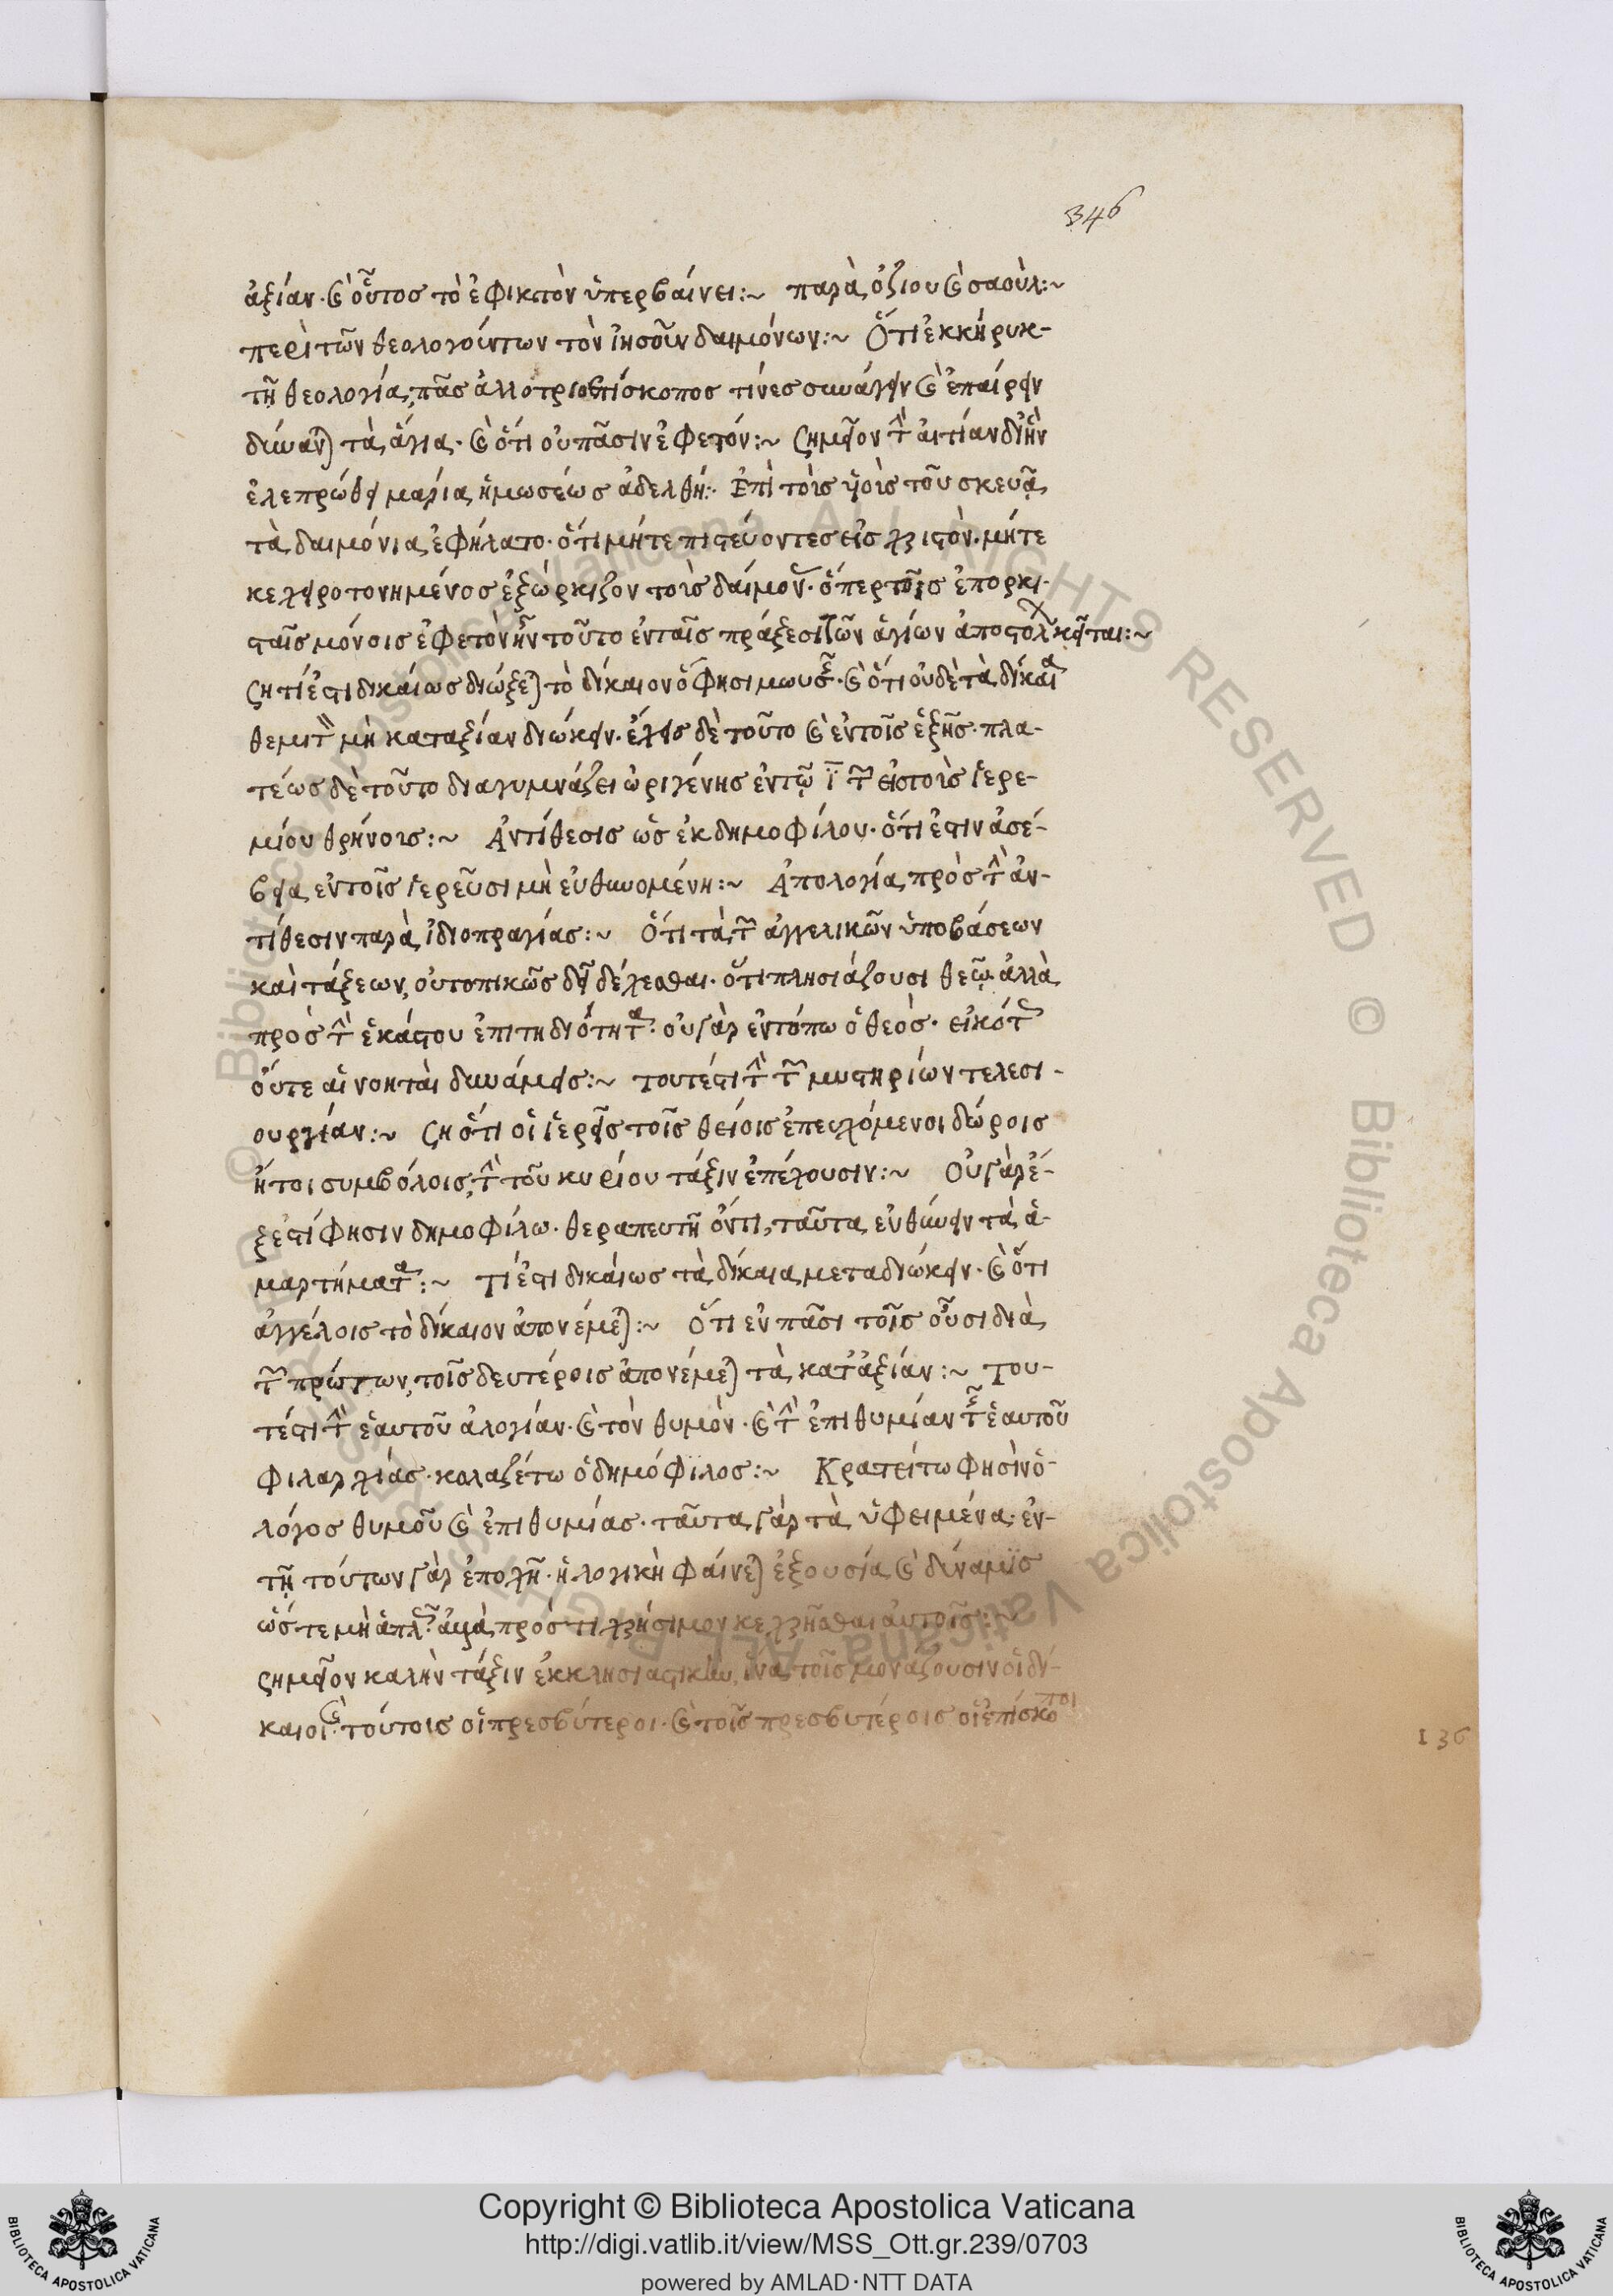 346
ἀξίαν· καὶ οὗτος τὸ ἐφικτὸν ὑπερβαίνει:~ παρὰ ὀζίου καὶ σαούλ:~
περὶ τῶν θεολογούντων τὸν ἰησοῦν δαιμόνων:~ Ὅτι ἐκκήρυκ-
τῇ θεολογία, πᾶς ἀλλοτριοεπίσκοπος τίνες συνάγειν καὶ ἐπαίρειν
δύναν) τὰ ἅγια· καὶ ὅτι οὐ πᾶσιν ἐφετόν:~ σημεῖον τὴν αἰτίαν δι ἣν
ἐλεπρώθη μαρία ἡ μωσέως ἀδελφή:· Ἐπὶ τοὺς υἱοὺς τοῦ σκευᾶ
τὰ δαιμόνια ἐφήλατο· ὅτι μήτε πιστεύοντες εἰς χριστὸν· μήτε
κεχειροτονημένος ἐξώρκιζον τοὺς δαίμον· ὅπερ τοῖς ἐπορκι-
σταῖς μόνοις ἐφετὸν ἦν τοῦτο ἐν ταῖς πράξεσι τῶν ἁγίων ἀποστολ κεῖται:~
ζη τί ἐστι δικαίως διώξε) τὸ δίκαιον ὅ φησι μωυσῆς· καὶ ὅτι οὐδὲ τὰ δίκαια
θεμιτὸν μὴ κατ αξίαν διώκειν· ἔχεις δὲ τοῦτο καὶ ἐν τοῖς ἑξῆς· πλα-
τέως δὲ τοῦτο διαγυμνάζει ὠριγένης ἐν τῷ ϊ τῶν εἰς τοὺς ἱερε-
μίου θρήνοις:~ Ἀντίθεσις ὡς ἐκ δημοφίλου· ὅτι ἐστιν ἀσέ-
βεια ἐν τοῖς ἱερεῦσι μὴ εὐθυνομένη:~ Ἀπολογία πρὸς τὴν ἀν-
τίθεσιν παρὰ ἰδιοπραγίας:~ Ὅτι τὰ τῶν ἀγγελικῶν ὑποβάσεων
καὶ τάξεων, οὐ τοπικῶς δεῖ δέχεσθαι· ὅτι πλησιάζουσι θεῷ ἀλλὰ
πρὸς τὴν ἑκάστου ἐπιτηδιότητα· οὐ γὰρ ἐν τόπω ὁ θεός· εἰκότως
οὔτε αἱ νοηταὶ δυνάμεις:~ τουτέστι τὴν τῶν μυστηρίων τελεσι-
ουργίαν:~ ζη ὅτι οἱ ἱερεῖς τοῖς θείοις ἐπευχόμενοι δώροις
ἤτοι συμβόλοις, τὴν τοῦ κυρίου τάξιν ἐπέχουσιν:~ Οὐ γὰρ ἐ-
ξεστί φησιν δημοφίλω· θεραπευτῆ ὄντι, ταῦτα εὐθύνειν τὰ ἁ-
μαρτήματα:~ τί ἐστι δικαίως τὰ δίκαια μεταδιώκειν· καὶ ὅτι
ἀγγέλοις τὸ δίκαιον ἀπονέμε):~ Ὅτι ἐν πᾶσι τοῖς οὖσι διὰ
τῶν πρώτων, τοῖς δευτέροις ἀπονέμε) τὰ κατ ἀξίαν:~ του-
τέστι τὴν ἑαυτοῦ ἀλογίαν· καὶ τὸν θυμὸν· καὶ τὴν ἐπιθυμίαν τῆς ἑαυτοῦ
φιλαρχίας· κολαζέτω ὁ δημόφϊλος:~ Κρατείτω φησὶν ὁ
λόγος θυμοῦ καὶ ἐπιθυμίας· ταῦτα γὰρ τὰ ὑφειμένα· ἐν-
τῇ τούτων γὰρ ἐποχῇ· ἡ λογικὴ φαίνε) ἐξουσία καὶ δύναμϊς
ὥστε μὴ ἁπλῶς ἀλλὰ πρός τι χρήσιμον κεχρῆσθαι αὐτοῖς:~
σημεῖον καλὴν τάξιν ἐκκλησιαστικὴν, ἵνα τοῖς μονάζουσιν οἱ δι-
κονοι καὶ τούτοις οἱ πρεσβύτεροι· καὶ τοῖς πρεσβυτέροις οἱ ἐπίσκοποι
136
© Biblioteca Apostolica Vaticana ALL RIGHTS RESERVED
Copyright © Biblioteca Apostolica Vaticana
http://digi.vatlib.it/view/MSS_Ott.gr.239/0703
powered by AMLAD·NTT DATA
BIBLIOTECA APOSTOLICA VATICANA
BIBLIOTECA APOSTOLICA VATICANA